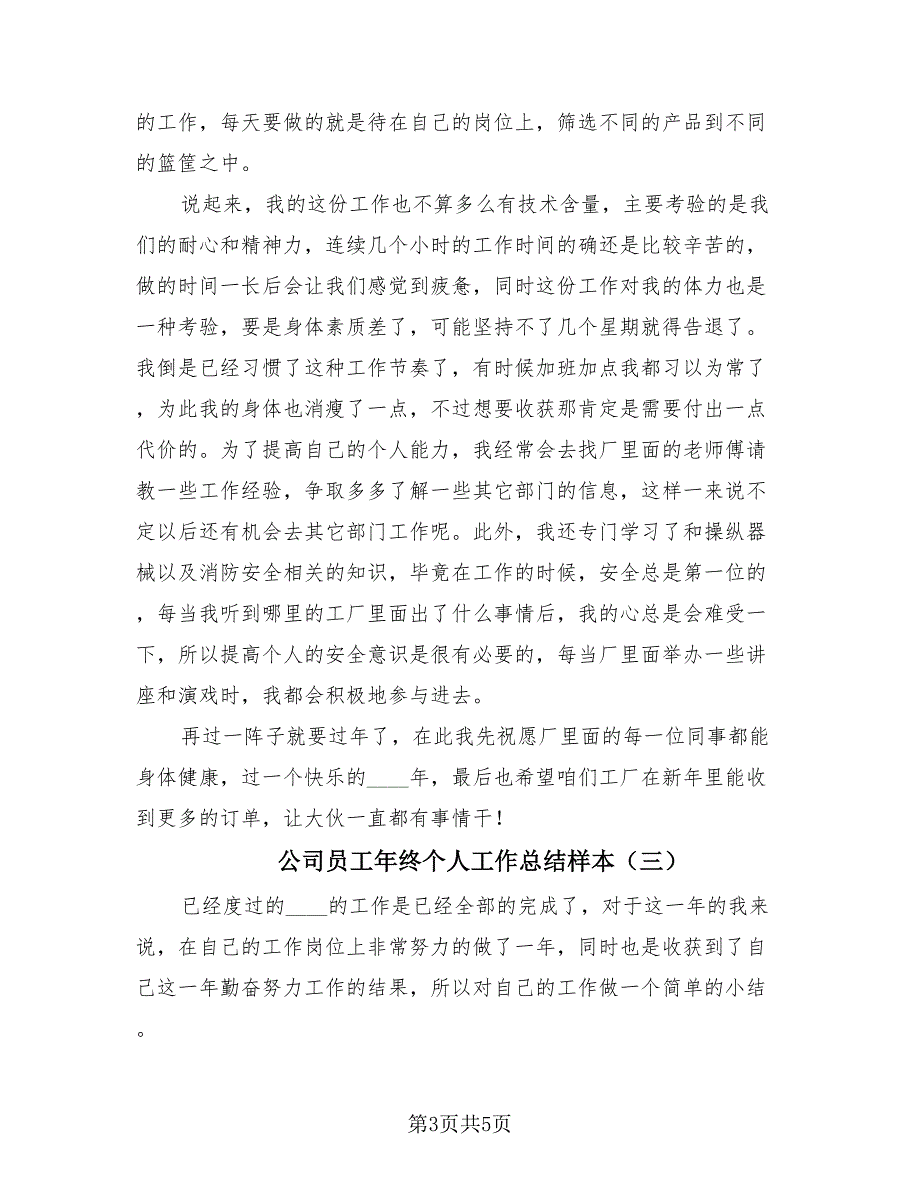 的工作，每天要做的就是待在自己的岗位上，筛选不同的产品到不同
的篮筐之中。
说起来，我的这份工作也不算多么有技术含量，主要考验的是我
们的耐心和精神力，连续几个小时的工作时间的确还是比较辛苦的，
做的时间一长后会让我们感觉到疲惫，同时这份工作对我的体力也是
一种考验，要是身体素质差了，可能坚持不了几个星期就得告退了。
我倒是已经习惯了这种工作节奏了，有时候加班加点我都习以为常了
，为此我的身体也消瘦了一点，不过想要收获那肯定是需要付出一点
代价的。为了提高自己的个人能力，我经常会去找厂里面的老师傅请
教一些工作经验，争取多多了解一些其它部门的信息，这样一来说不
定以后还有机会去其它部门工作呢。此外，我还专门学习了和操纵器
械以及消防安全相关的知识，毕竟在工作的时候，安全总是第一位的
，每当我听到哪里的工厂里面出了什么事情后，我的心总是会难受一
下，所以提高个人的安全意识是很有必要的，每当厂里面举办一些讲
座和演戏时，我都会积极地参与进去。
再过一阵子就要过年了，在此我先祝愿厂里面的每一位同事都能
身体健康，过一个快乐的____年，最后也希望咱们工厂在新年里能收
到更多的订单，让大伙一直都有事情干！
公司员工年终个人工作总结样本（三）
已经度过的____的工作是已经全部的完成了，对于这一年的我来
说，在自己的工作岗位上非常努力的做了一年，同时也是收获到了自
己这一年勤奋努力工作的结果，所以对自己的工作做一个简单的小结
。
第3页共5页